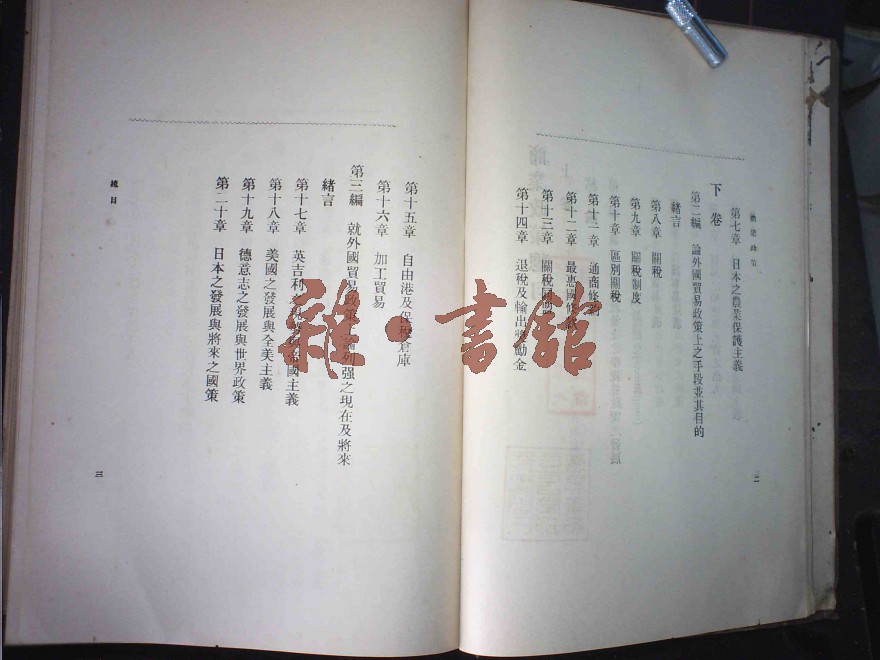 商業政策
第七章 日本之農業保護主義
下卷
第二編 論外國貿易政策上之手段並其目的
緒言
第八章 關稅
第九章 關稅制度
第十章 區別關稅
第十一章 通商條約
第十二章 最惠國條款
第十三章 關稅同盟
第十四章 退稅及輸出獎勵金
二
第十五章 自由港及保稅倉庫
第十六章 加工貿易
第三編 就外國貿易政策論列强之現在及將來
緒言
第十七章 英吉利之
帝國主義
第十八章 美國之發展與全美主義
第十九章 德意志之發展與世界政策
第二十章 日本之發展與將來之國策
總目
三
雜·書館